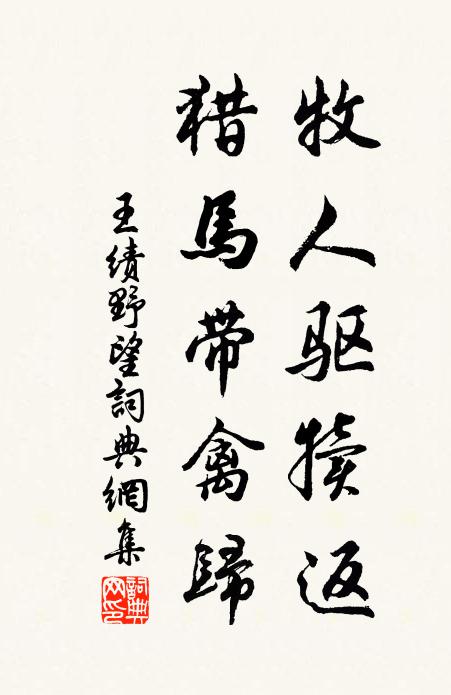 牧人驱犊返
猎馬带禽歸
王绩野望詞典網集
詞典網印